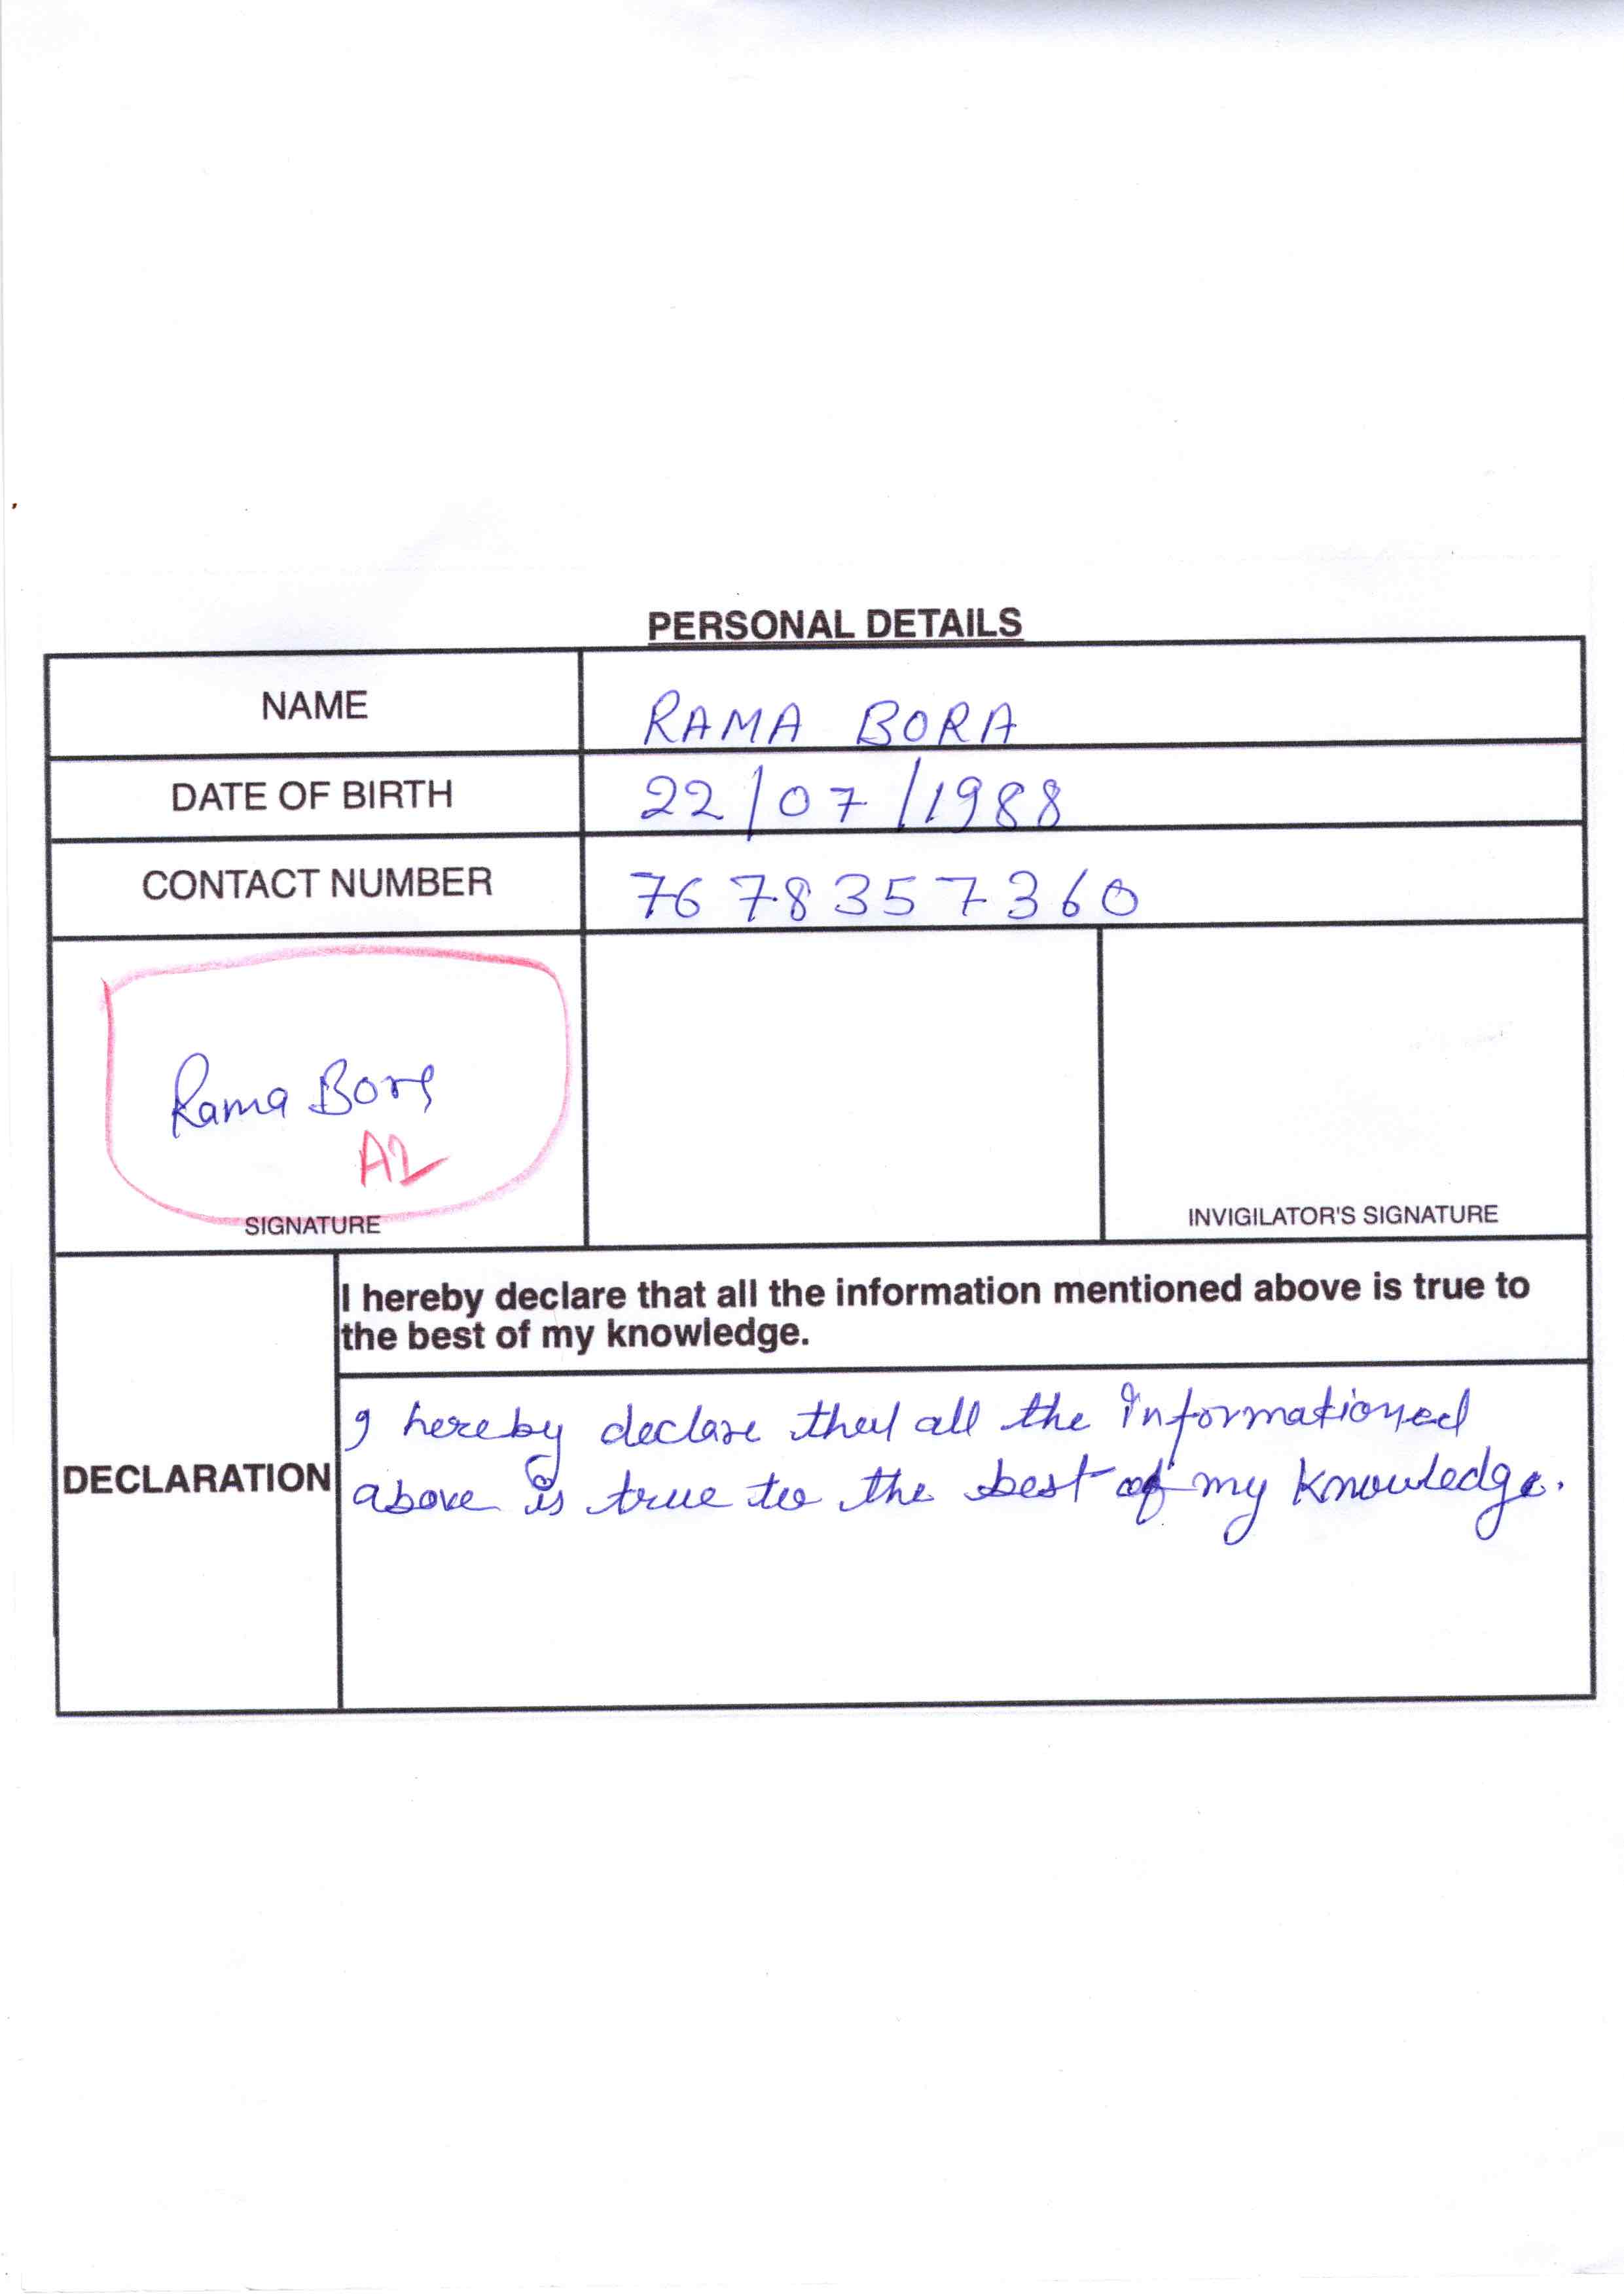 PERSONAL DETAILS
NAME
RAMA BORA
DATE OF BIRTH
22/07/1988
CONTACT NUMBER
7678357360
Rama Bora
A2
SIGNATURE
INVIGILATOR'S SIGNATURE
DECLARATION
I hereby declare that all the information mentioned above is true to
the best of my knowledge.
I hereby declare that all the Informationed
above is true to the best of my knowledge.